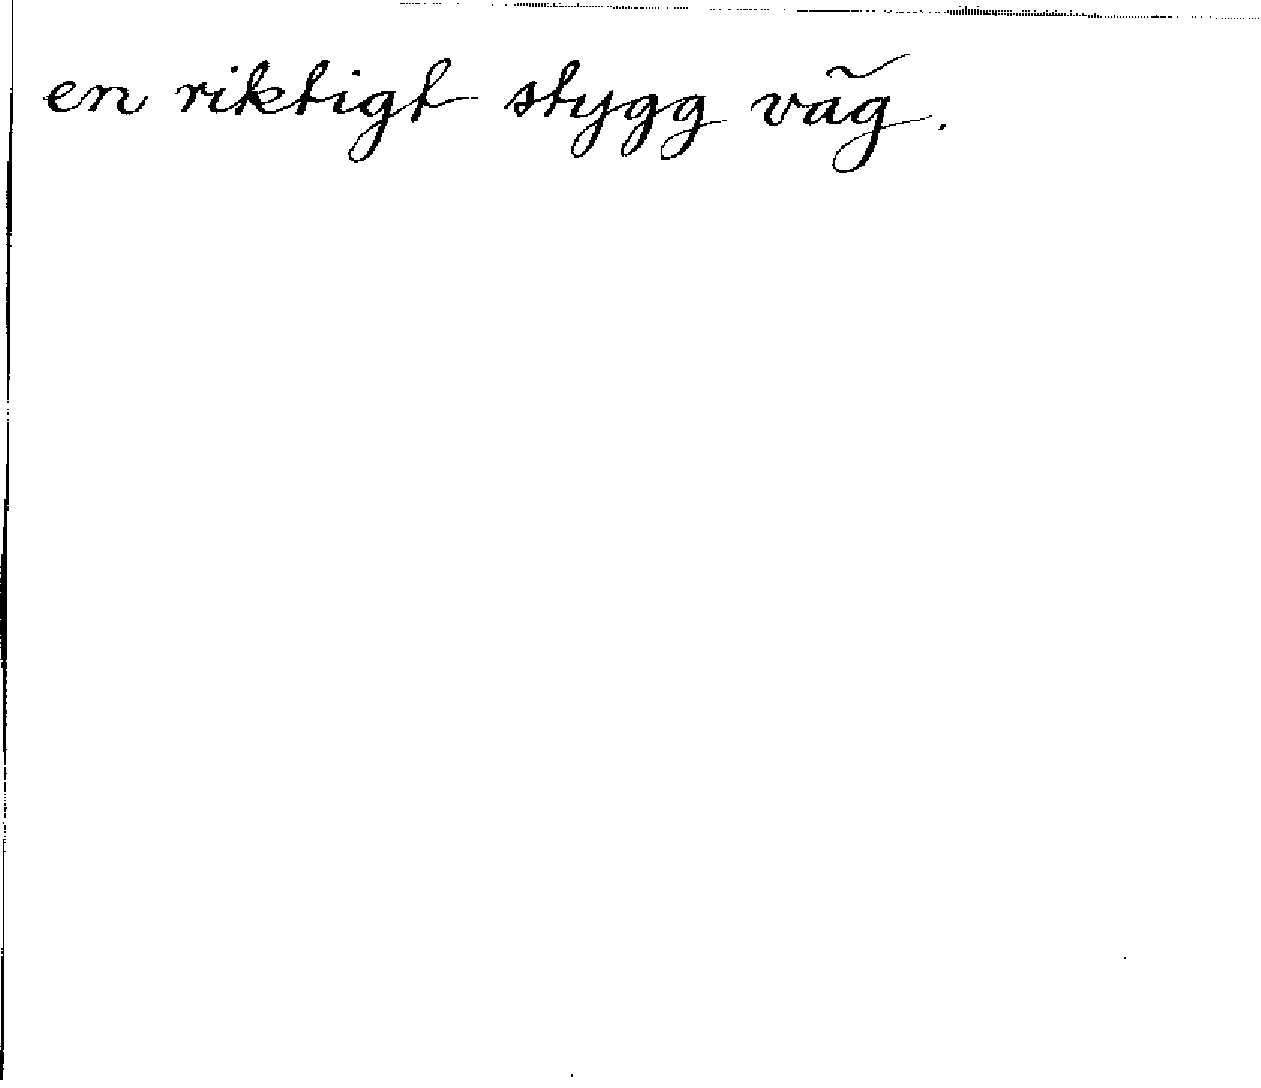 en riktigt stygg väg.